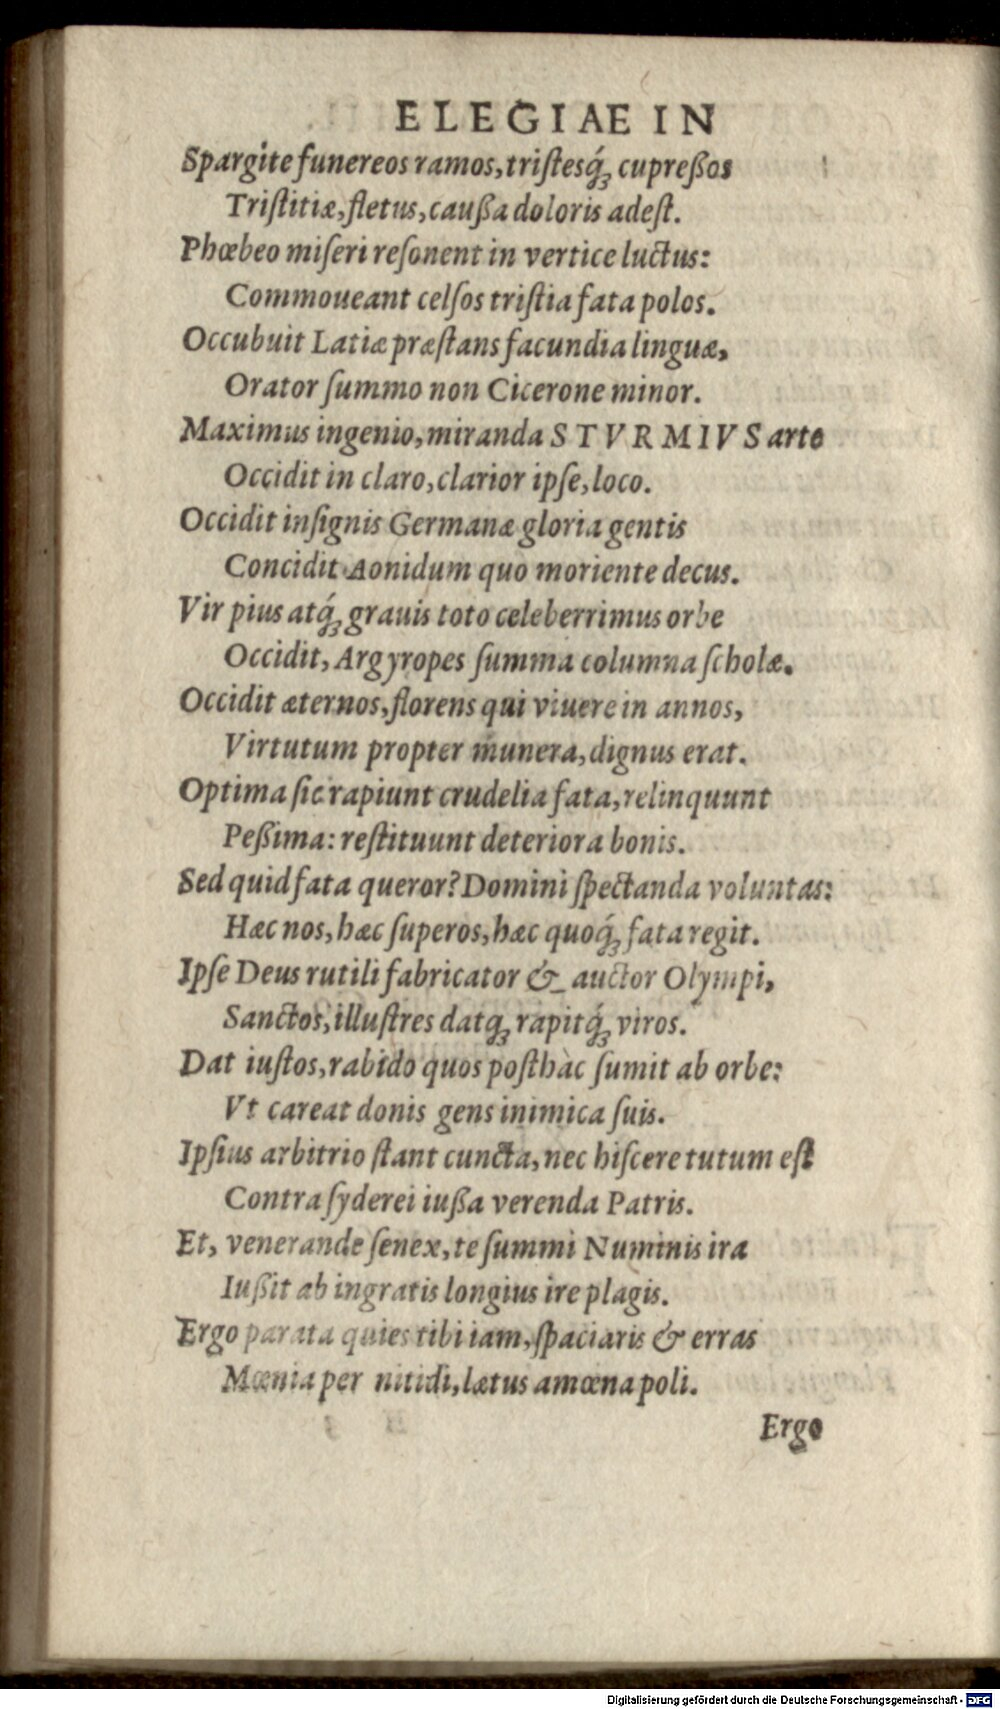 ELEGIAE IN
Spargite funereos ramos, tristesq́ꝫ cupreßos
Tristitiæ, fletus, caußa doloris adest.
Phœbeo miseri resonent in vertice luctus:
Commoueant celsos tristia fata polos.
Occubuit Latiæ præstans facundia linguæ,
Orator summo non Cicerone minor.
Maximus ingenio, miranda STVRMIVS arte
Occidit in claro, clarior ipse, loco.
Occidit insignis Germanæ gloria gentis
Concidit Aonidum quo moriente decus.
Vir pius atq́ꝫ grauis toto celeberrimus orbe
Occidit, Argyropes summa columna scholæ.
Occidit æternos, florens qui viuere in annos,
Virtutum propter munera, dignus erat.
Optima sic rapiunt crudelia fata, relinquunt
Peßima: restituunt deteriora bonis.
Sed quid fata queror? Domini spectanda voluntas:
Hæc nos, hæc superos, hæc quoq́ꝫ fata regit.
Ipse Deus rutili fabricator & auctor Olympi,
Sanctos, illustres datqꝫ rapitq́ꝫ viros.
Dat iustos, rabido quos posthàc sumit ab orbe:
Vt careat donis gens inimica suis.
Ipsius arbitrio stant cuncta, nec hiscere tutum est
Contra syderei iußa verenda Patris.
Et, venerande senex, te summi Numinis ira
Iußit ab ingratis longius ire plagis.
Ergo parata quies tibi iam, spaciaris & erras
Mœnia per nitidi, lætus amœna poli.
Ergo
Digitalisierung gefördert durch die Deutsche Forschungsgemeinschaft - DFG